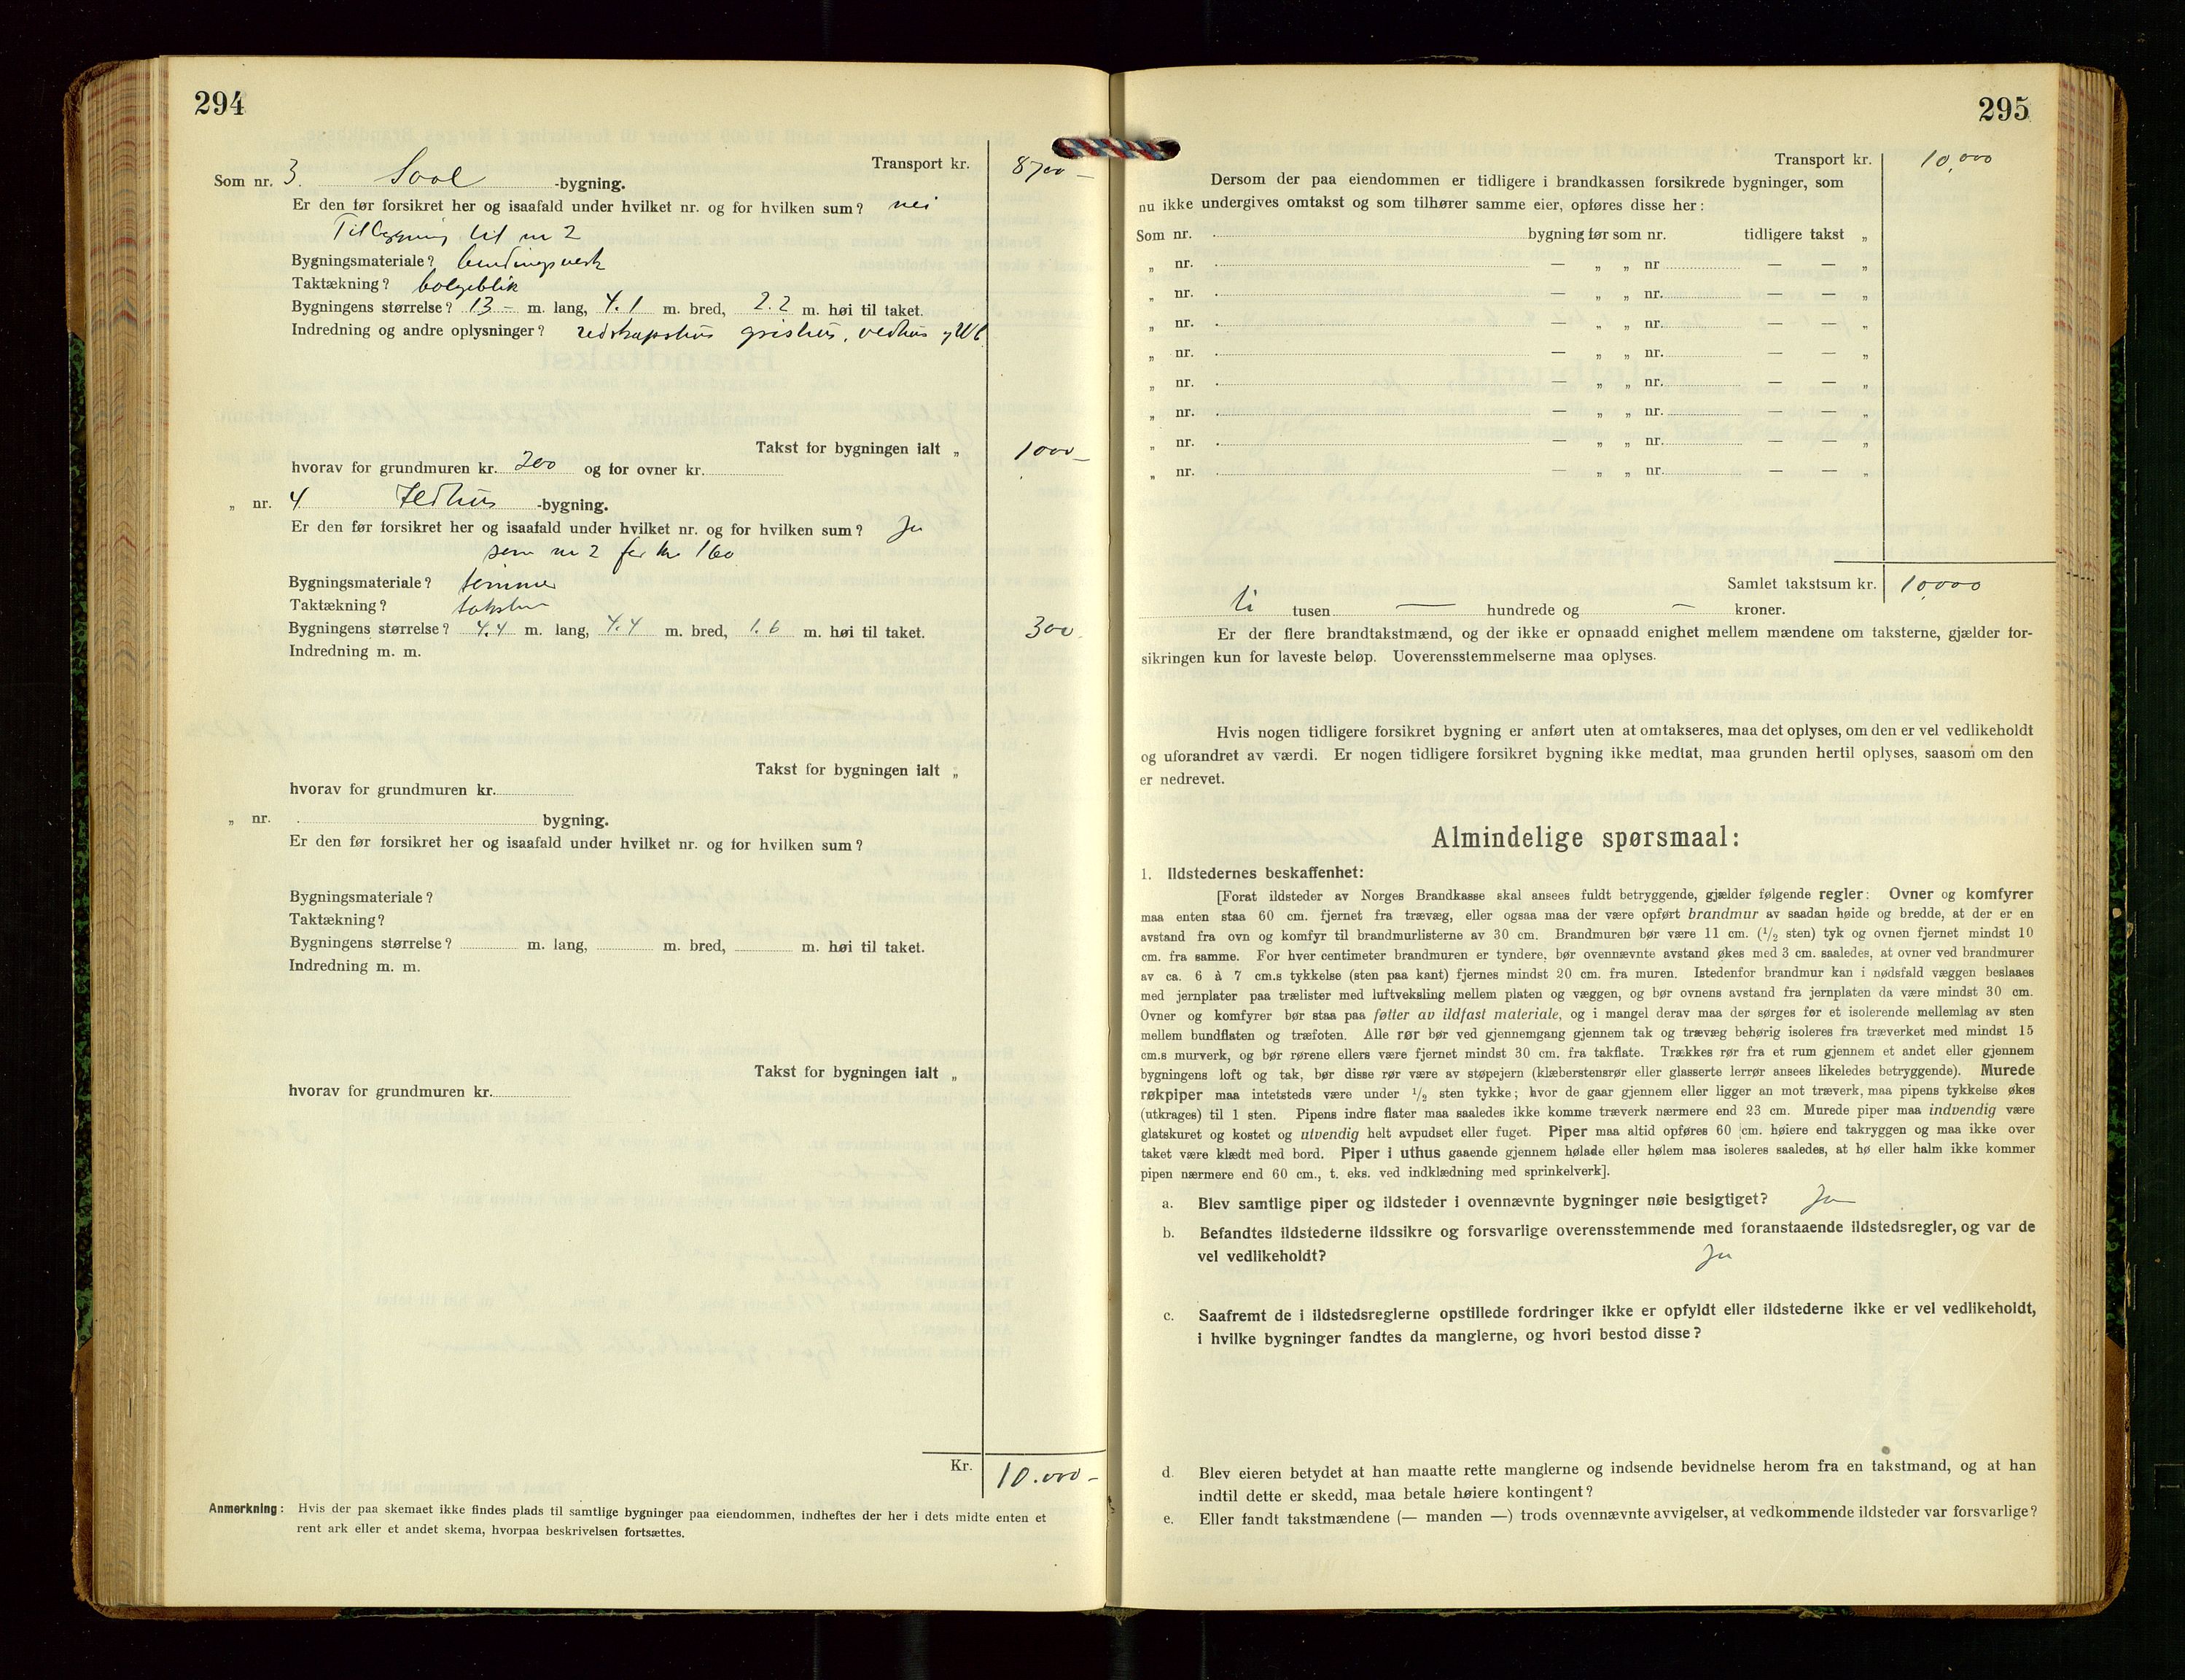 294
Transport kr. 8700 —
Som nr. 3. Sval -bygning.
Er den før forsikret her og isaafald under hvilket nr. og for hvilken sum? nei
Tilbygning til nr 2
Bygningsmateriale? bindingsverk
Taktækning? bølgeblik
Bygningens størrelse? 13 – m. lang, 4.1 m. bred, 2.2 m. høi til taket.
Indredning og andre oplysninger? redskapshus grishus, vedhus
Takst for bygningen ialt „ 1000 –
hvorav for grundmuren kr. 200 og for ovner kr.
„ nr. 4 Ildhus -bygning.
Er den før forsikret her og isaafald under hvilket nr. og for hvilken sum? Ja
som nr 2 for kr 160
Bygningsmateriale? tømmer
Taktækning? taksten
Bygningens størrelse? 4.4 m. lang, 4.4 m. bred, 1.6 m. høi til taket. 300.
Indredning m. m.
Takst for bygningen ialt „
hvorav for grundmuren kr.
„ nr. . bygning.
Er den før forsikret her og isaafald under hvilket nr. og for hvilken sum?
Bygningsmateriale?
Taktækning?
Bygningens størrelse? m. lang, m. bred, m. høi til taket.
Indredning m. m.
Takst for bygningen ialt „
hvorav for grundmuren kr.
Kr. 10.000 –
Anmerkning: Hvis der paa skemaet ikke findes plads til samtlige bygninger paa eiendommen, indheftes der her i dets midte enten et
rent ark eller et andet skema, hvorpaa beskrivelsen fortsættes.
295
Transport kr. 10,000
Dersom der paa eiendommen er tidligere i brandkassen forsikrede bygninger, som
nu ikke undergives omtakst og som tilhører samme eier, opføres disse her:
Som nr. . bygning før som nr. tidligere takst „
„ nr. . — „ „ nr. — — „
„ nr. . — „ „ nr. — — „
„ nr. . — „ „ nr. — — „
„ nr. . — „ „ nr. — — „
„ nr. . — „ „ nr. — — „
„ nr. . — „ „ nr. — — „
„ nr. . — „ „ nr. — — „
„ nr. . — „ „ nr. — — „
Samlet takstsum kr. 10,000
ti tusen — hundrede og — kroner.
Er der flere brandtakstmænd, og der ikke er opnaadd enighet mellem mændene om taksterne, gjælder for-
sikringen kun for laveste beløp. Uoverensstemmelserne maa oplyses.
Hvis nogen tidligere forsikret bygning er anført uten at omtakseres, maa det oplyses, om den er vel vedlikeholdt
og uforandret av værdi. Er nogen tidligere forsikret bygning ikke medtat, maa grunden hertil oplyses, saasom om den
er nedrevet.
Almindelige spørsmaal:
1. Ildstedernes beskaffenhet:
[Forat ildsteder av Norges Brandkasse skal ansees fuldt betryggende, gjælder følgende regler: Ovner og komfyrer
maa enten staa 60 cm. fjernet fra trævæg, eller ogsaa maa der være opført brandmur av saadan høide og bredde, at der er en
avstand fra ovn og komfyr til brandmurlisterne av 30 cm. Brandmuren bør være 11 cm. (1/2 sten) tyk og ovnen fjernet mindst 10
cm. fra samme. For hver centimeter brandmuren er tyndere, bør ovennævnte avstand økes med 3 cm. saaledes, at ovner ved brandmurer
av ca. 6 à 7 cm.s tykkelse (sten paa kant) fjernes mindst 20 cm. fra muren. Istedenfor brandmur kan i nødsfald væggen beslaaes
med jernplater paa trælister med luftveksling mellem platen og væggen, og bør ovnens avstand fra jernplaten da være mindst 30 cm.
Ovner og komfyrer bør staa paa føtter av ildfast materiale, og i mangel derav maa der sørges for et isolerende mellemlag av sten
mellem bundflaten og træfoten. Alle rør bør ved gjennemgang gjennem tak og trævæg behørig isoleres fra træverket med mindst 15
cm.s murverk, og bør rørene ellers være fjernet mindst 30 cm. fra takflate. Trækkes rør fra et rum gjennem et andet eller gjennem
bygningens loft og tak, bør disse rør være av støpejern (klæberstensrør eller glasserte lerrør ansees likeledes betryggende). Murede
røkpiper maa intetsteds være under 1/2 sten tykke; hvor de gaar gjennem eller ligger an mot træverk, maa pipens tykkelse økes
(utkrages) til 1 sten. Pipens indre flater maa saaledes ikke komme træverk nærmere end 23 cm. Murede piper maa indvendig være
glatskuret og kostet og utvendig helt avpudset eller fuget. Piper maa altid opføres 60 cm. høiere end takryggen og maa ikke over
taket være klædt med bord. Piper i uthus gaaende gjennem hølade eller hølem maa isoleres saaledes, at hø eller halm ikke kommer
pipen nærmere end 60 cm., t. eks. ved indklædning med sprinkelverk].
a. Blev samtlige piper og ildsteder i ovennævnte bygninger nøie besigtiget? Ja
b. Befandtes ildstederne ildssikre og forsvarlige overensstemmende med foranstaaende ildstedsregler, og var de
vel vedlikeholdt? Ja
c. Saafremt de i ildstedsreglerne opstillede fordringer ikke er opfyldt eller ildstederne ikke er vel vedlikeholdt,
i hvilke bygninger fandtes da manglerne, og hvori bestod disse?
d. Blev eieren betydet at han maatte rette manglerne og indsende bevidnelse herom fra en takstmand, og at han
indtil dette er skedd, maa betale høiere kontingent?
e. Eller fandt takstmændene (— manden —) trods ovennævnte avvigelser, at vedkommende ildsteder var forsvarlige?